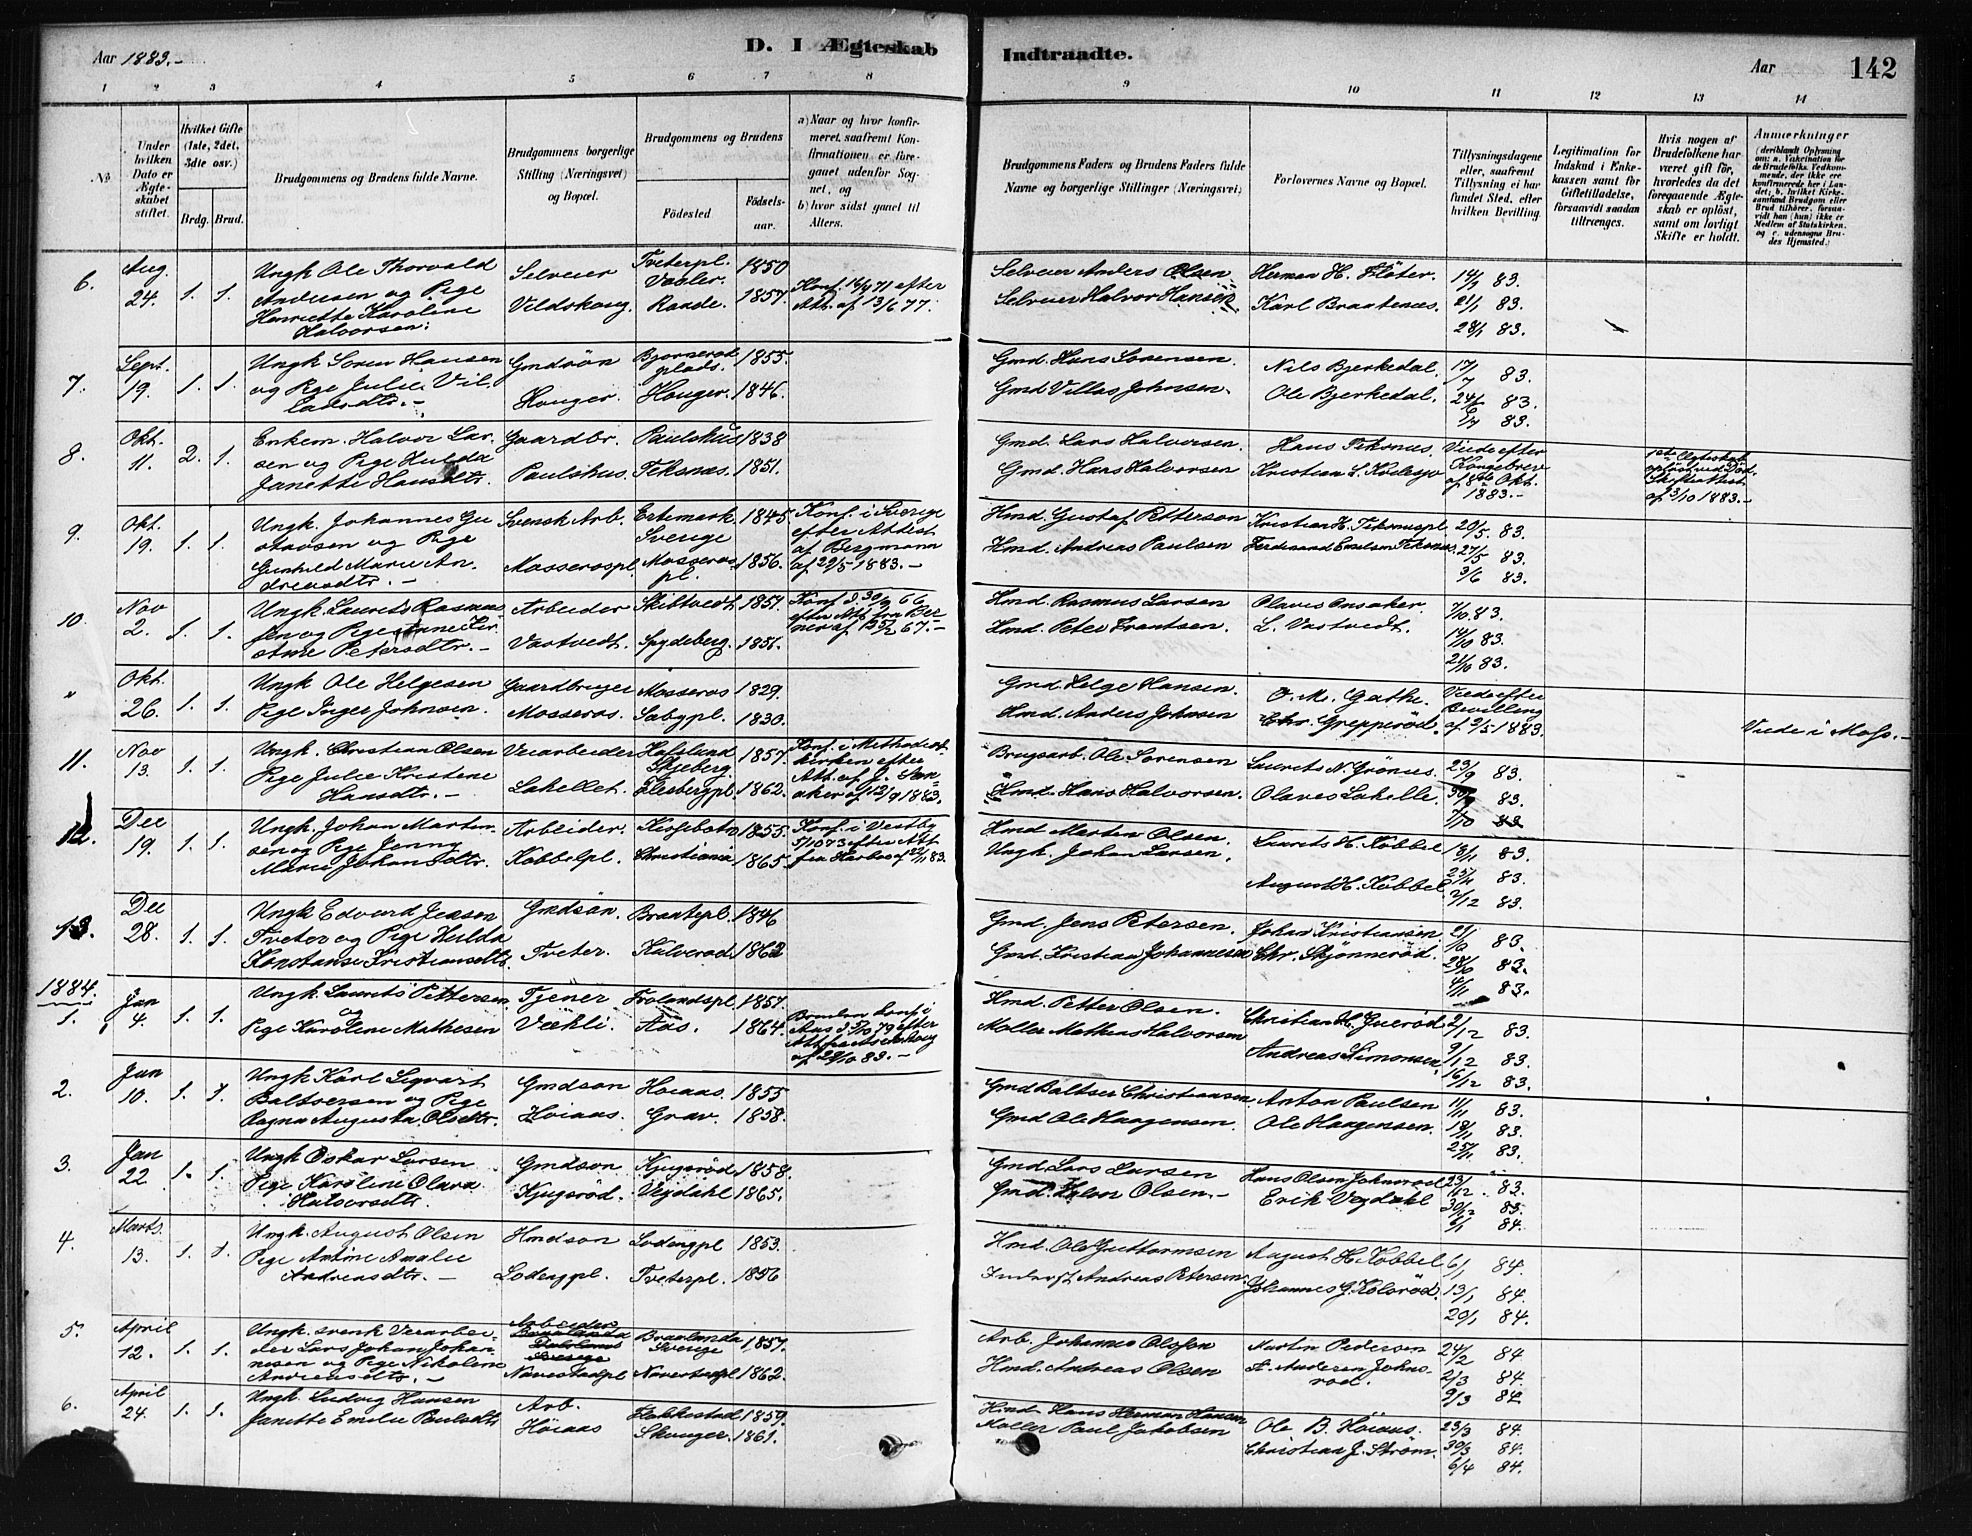 Aar 1883.-
D. I Ægteskab
Indtraadte.
Aar
142
1 2 3 4 5 6 7 8 9 10 11 12 13 14
No.
Under hvilken Dato er Ægteskabet stiftet.
Hvilket Gifte (1ste, 2det, 3dte osv.)
Brdg. Brud.
Brudgommens og Brudens fulde Navne.
Brudgommens borgerlige Stilling (Næringsvei) og Bopæl.
Brudgommens og Brudens
Fødested
Fødselsaar.
a) Naar og hvor konfirmeret, saafremt Konfirmationen er foregaaet udenfor Sognet, og
b) hvor sidst gaaet til Alters.
Brudgommens Faders og Brudens Faders fulde Navne og borgerlige Stillinger (Næringsvei)
Forlovernes Navne og Bopæl.
Tillysningsdagene eller, saafremt Tillysning ei har fundet Sted, efter hvilken Bevilling.
Legitimation for Indskud i Enkekassen samt for Giftetilladelse, forsaavidt saadan tiltrænges.
Hvis nogen af Brudefolkene har været gift før, hvorledes da det foregaaende Ægteskab er opløst, samt om lovligt Skifte er holdt.
Anmærkninger
6. Aug. 24. 1. 1.
Ungk Ole Thorvald
Andersen og Pige
Henriette Karoline
Halvorsen.
Selveier
Vildskoug
Tveterpl. Vaaler. 1850
Raade. 1857.
Konf. efter
Att. af 13/6 77.
Selveier Anders Olsen
Selveier Halvor Hansen
Herman H. Fløter.
Karl Braatenæs.
83.
83.
83.
7. Sept. 19. 1. 1.
Ungk Soren Hansen
og Pige Julie Vil-
Gmdsøn
Houger.
plads. 1855.
Houger. 1846.
Gmd. Hans Sorensen.
Gmd Villas Johnsen.
Nils Bjerkedal.
Ole Bjerkedal.
17/7 83.
83.
83.
8. Okt. 11. 2. 1.
Enkem. Halvor Lar-
sen og Pige Hulda
Janette Hansdtr.
Gaardbr.
Paulshus.
Paulshus 1838
Teksnæs. 1851.
Gmd. Lars Halvorsen.
Gmd. Hans Halvorsen
Hans Teksnæs.
Viede efter
Kongebrev
af 8de Okt.
1883.-
1ste Ægteskab
opløst ved Død.
af 23/10 1883.-
9. Okt. 19. 1. 1.
Ungk. Johannes Gu
stavsen og Pige
Gunhild Marie An-
dreasdtr. -
Svensk Arb.
Mosserospl.
Ertemark Sverige 1845.
Mosseros pl. 1856.
Konf. i Sverige
efter Attest
af Bergmann
af 29/5 1883.-
Hmd. Gustaf Petterson
Hmd. Andreas Paulsen
Kristian H. Teksnæspl.
Ferdinand Emilsen Teksnæs.
20/5. 83.
27/5 83.
3/6 83.
10. Nov 2. 1. 1.
Ungk. Laurits Rasmus-
sen og Pige
Petersdtr. -
Arbeider
Vastvedt.
Skibtvedt 1857.
Spydeberg. 1856.
Konf. d. 30/9 66
Hmd. Rasmus Larsen
Hmd. Peter Frantsen.
Olaves Onsaker.
L. Vastvedt.
7/10 83.
14/10 83.
21/10 83.
" Okt. 26. 1. 1.
Ungk Ole Helgesen
Pige Inger Johnsen.
Gaardbruger
Mosseros.
Mosseros 1829.
Sæbypl. 1830.
Gmd. Helge Hansen.
Hmd. Anders Johnsen
O. M. Gathe.
Chr. Grepperød.
Viede efter
Bevilling
af 2/5 1883.
Viede i Moss.-
11. Nov 13. 1. 1.
Ungk. Christian Olsen
Pige Julie Kristine
Hansdtr. -
Veiarbeider
Lakellet.
Hafslund Skjeberg. 1857.
1862.
Konf. i Methodist-
kirken efter
Att. af J. San-
aker af 12/9 1883.
Brugsarb. Ole Sorensen
Hmd. Hans Halvorsen.
Laurits N. Grønæs.
Olaves Lakelle.
23/9 83.
30/9 83.
7/10 83
12. Dec 19. 1. 1.
Ungk. Johan Marten-
sen og Pige Jenny
Marie Johansdtr.
Arbeider.
Kobbelpl.
1855.
Christiania 1865.
Konf. i Vestby
5/10 73 efter Att
Hmd Morten Olsen.
Ungk. Johan Larsen.
Laurits H. Kobbel
August H. Kobbel
18/11 83.
25/11 83.
2/12 83.
13. Dec 28. 1. 1.
Ungk Edvard Jensen
Tveter og Pige Hulda
Konstanse Kristiansdtr.
Gmdsøn.
Tveter.
Braatepl. 1846
Kalverød 1862
Gmd. Jens Petersen.
Gmd. Kristian Johannesen
Johan Kristiansen
Chr. Skjønnerød.
83.
83.
83.
1884.
1. Jan 4. 1. 1.
Ungk. Laurits Pettersen
og
Pige Karoline Mathesen
Tjener
Vækli.
Frolandspl. 1857.
Aas. 1864.
Bruden konf. i
Aas d. 5/10 79 efter
af 28/10 83.-
Hmd. Petter Olsen.
Moller Mathias Halvorsen
Andreas Simonsen
2/12 83.
9/12 83.
16/12 83.
2. Jan 10. 1. 1.
Ungk Karl Sigvart
Baltsersen og Pige
Ragna Augusta Olsdtr.
Gmdsøn
Hoiaas.
Hoiaas. 1855
Grav. 1858.
Gmd Baltser Christiansen
Gmd Ole Haagensen.
Anton Paulsen
Ole Haagensen.
11/11 83.
18/11 83.
25/11 83.
3. Jan 22 1. 1.
Ungk Oskar Larsen
Pige Karoline Olava
Halvorsdtr.
Gmdsøn
Kjugsrød.
Kjugsrød 1858.
Vegdahl 1865.
Gmd. Lars Larsen
Gmd. Halvor Olsen.-
Hans Olsen Johnsrød
Erik Vegdahl
23/12 83.
30/12 83.
6/1 84.
4. Marts. 13. 1. 1.
Ungk. August Olsen
Pige Amalie
Andreasdtr. -
Hmdsøn
Lodengpl.
Lodengpl 1853.
Tveterpl. 1856
Hmd. Ole Guttormsen
Andreas Petersen.
August H. Kobbel
Johannes G. Kolsrød.
6/1 84.
13/1 84.
20/1 84.
5. April 12. 1. 1.
Ungk. svensk Veiarbei-
der Lars Johan Johan-
nesen og Pige Nikoline
Andreasdtr. -
Arbeider
Navestadpl
Braalanda Sverige 1857.
Navestadpl 1862.
Arb. Johannes Olsson
Hmd. Andreas Olsen
Martin Pedersen
A. Andersen Johns-
rød.
24/2 84
2/3 84.
9/3 84
6. April 24. 1. 1.
Ungk. Ludvig Hansen
Janette Emilie Paulsdtr
Arb.
Høiaas
Flakkestad 1859.
Skauger. 1861.
Hmd. Hans Herman Hansen
Moller Paul Jakobsen
Ole B. Høiaas.
Christian J. Strøm.
23/3 84.
30/3 84.
6/4 84.